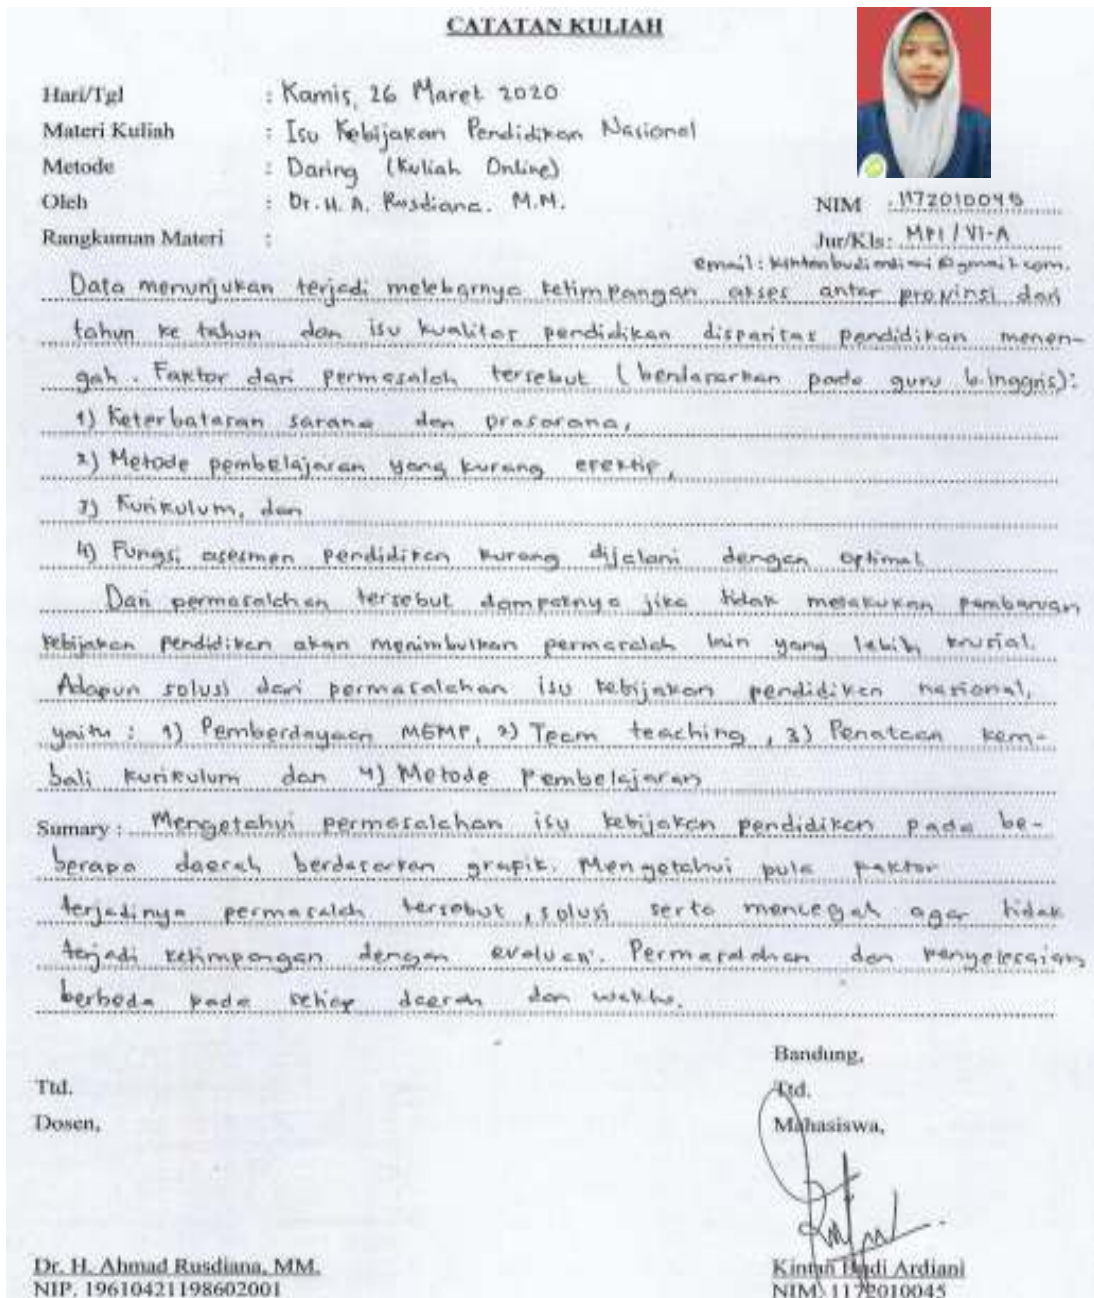 CATATAN KULIAH
Hari/Tgl : Kamis, 26 Maret 2020
Materi Kuliah : Isu Kebijakan Pendidikan Nasional
Metode : Daring (Kuliah Online)
Oleh : Dr. H. A. Rusdiana. M.M.
NIM : 1172010045
Rangkuman Materi :
Jur/Kls: MPI / VI-A
email: kintanbudiardiani@gmail.com.
Data menunjukan terjadi melebarnya ketimpangan akses antar provinsi dari
tahun ke tahun dan isu kualitas pendidikan disparitas pendidikan menen-
gah. Faktor dari permasalah tersebut (berdasarkan pada guru b.inggris):
1) Keterbatasan sarana dan prasarana,
2) Metode pembelajaran yang kurang efektif,
3) Kurikulum, dan
4) Fungsi asesmen pendidikan kurang dijalani dengan optimal
Dari permasalahan tersebut dampaknya jika tidak melakukan pembaruan
kebijakan pendidikan akan menimbulkan permasalah lain yang lebih krusial.
Adapun solusi dari permasalahan isu kebijakan pendidikan nasional,
yaitu : 1) Pemberdayaan MGMP, 2) Team teaching, 3) Penataan kem-
bali kurikulum dan 4) Metode Pembelajaran
Sumary : Mengetahui permasalahan isu kebijakan pendidikan pada be-
berapa daerah berdasarkan grafik. Mengetahui pula faktor
terjadinya permasalah tersebut, solusi serta mencegah agar tidak
terjadi ketimpangan dengan evaluasi. Permasalahan dan penyelesaian
berbeda pada setiap daerah dan waktu.
Bandung,
Ttd. Ttd.
Dosen, Mahasiswa,
Dr. H. Ahmad Rusdiana, MM. Kintan Budi Ardiani
NIP. 19610421198602001 NIM. 1172010045